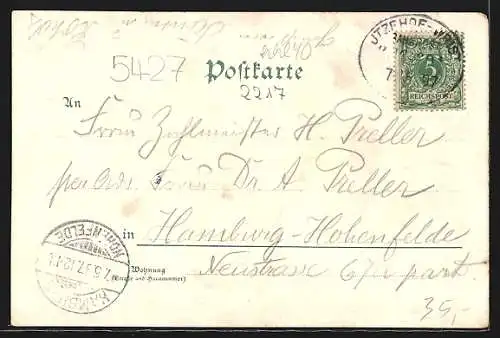 5427
Postkarte
2217
ITZEHOE-WRIST
5
REICHSPOST
An
Frau Zahlmeister H. Preller
per Adr. Frau Dr. A. Preller
in Hamburg-Hohenfelde
HOHENFELDE
7.5.97.12-1
HAMBURG
Wohnung
(Straße und Hausnummer)
Neustrasse 67 part.
35,-